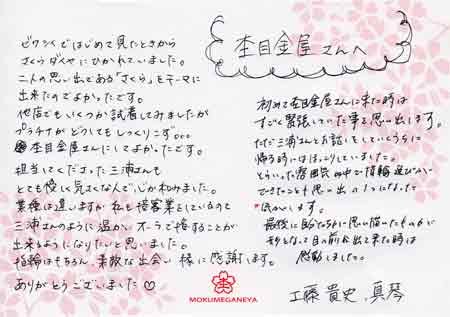 杢目金屋さんへ
ゼクシィではじめて見たときから
さくらダイヤにひかれていました。
二人の思い出である「さくら」をテーマに
出来たのでよかったです。
他店でもいくつか試着してみましたが
プラチナがどうしてもしっくりこず…
杢目金屋さんにしてよかったです。
担当してくださった三浦さんも
とても優しく気さくなんで、心が和みました。
業種は違いますが私も接客業としているので
三浦さんのように温かいオーラで接することが
出来るようになりたいと思いました。
指輪はもちろん、素敵な出会い様に感謝します。
ありがとうございました♡
初めて杢目金屋さんに来た時は
すごく緊張していた事を思い出します。
ただ三浦さんとお話をしていくうちに
帰る時にはほっこりしていました。
そういった雰囲気の中で指輪選びが
できたことも思い出の1つになった
気がします。
最後に 思い描いたものが
形となって目の前に出て来た時は
感動しました。
工藤 貴史、真琴
MOKUMEGANEYA